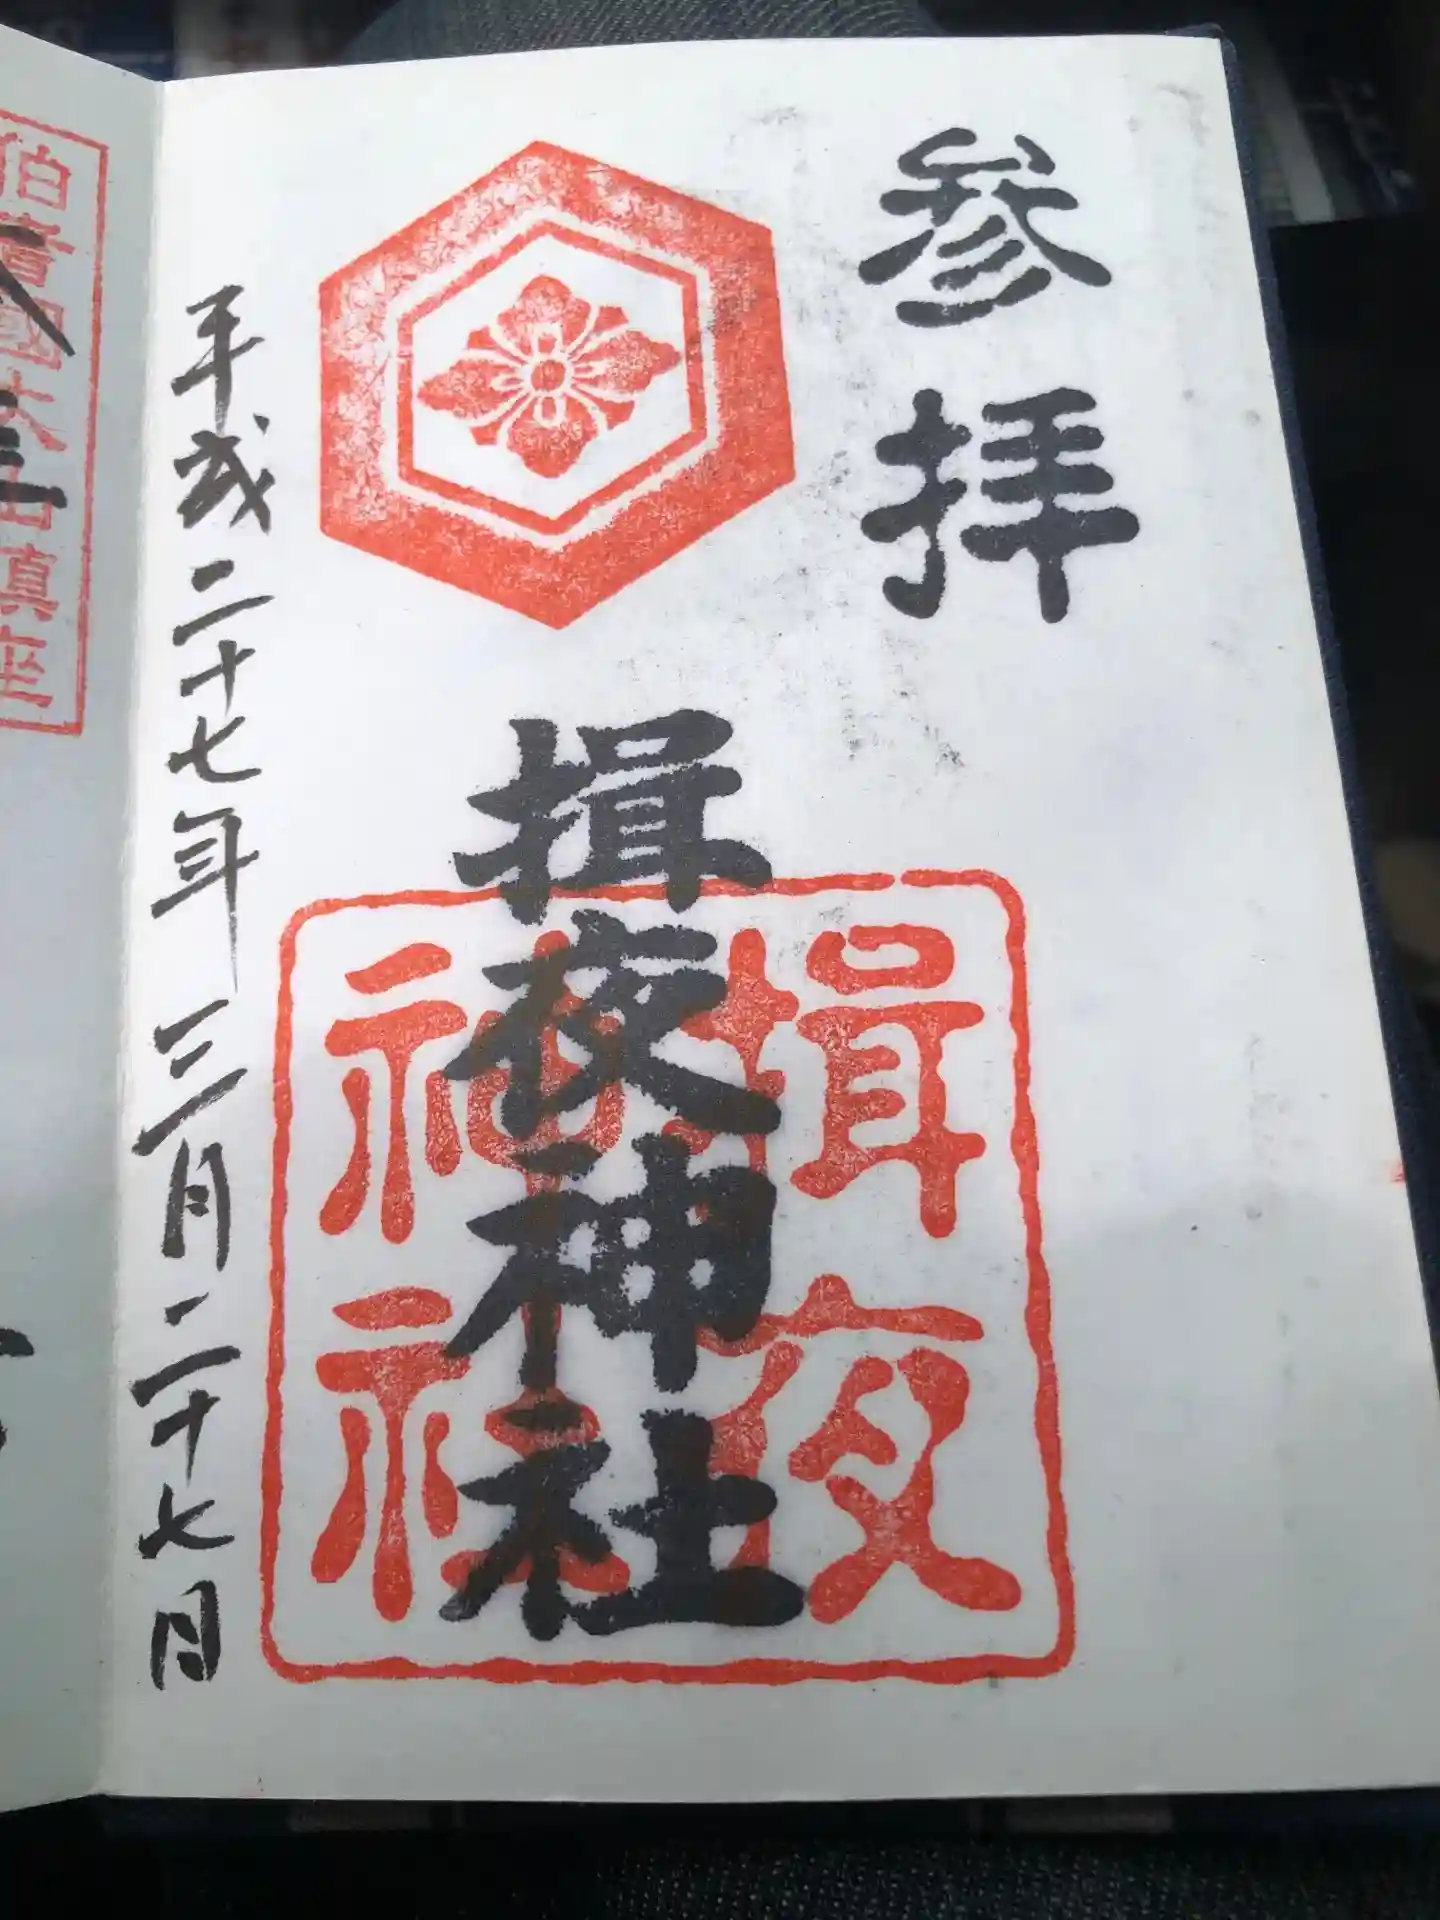 参拝
揖夜神社
揖夜
神社
平成二十七年三月二十七日
伯耆國大山鎮座